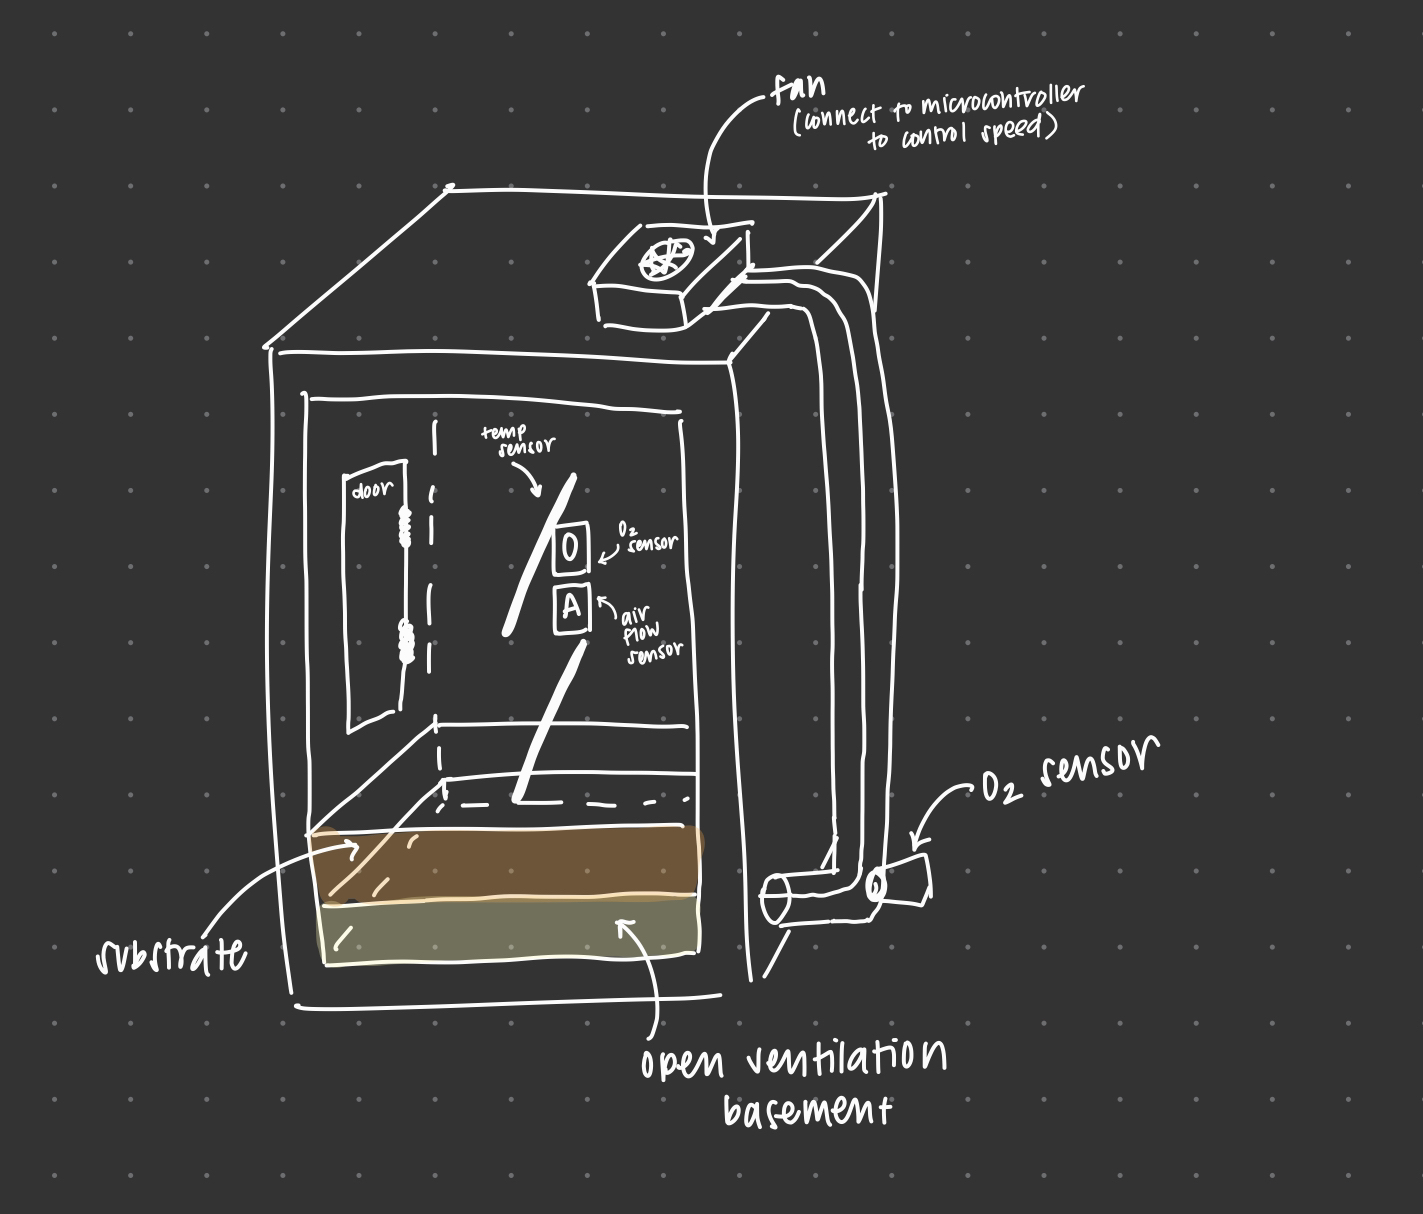 fan
(connect to microcontroller
to control speed)
temp
sensor
door
O
O₂
sensor
A
air
flow
sensor
O₂ sensor
substrate
open ventilation
basement